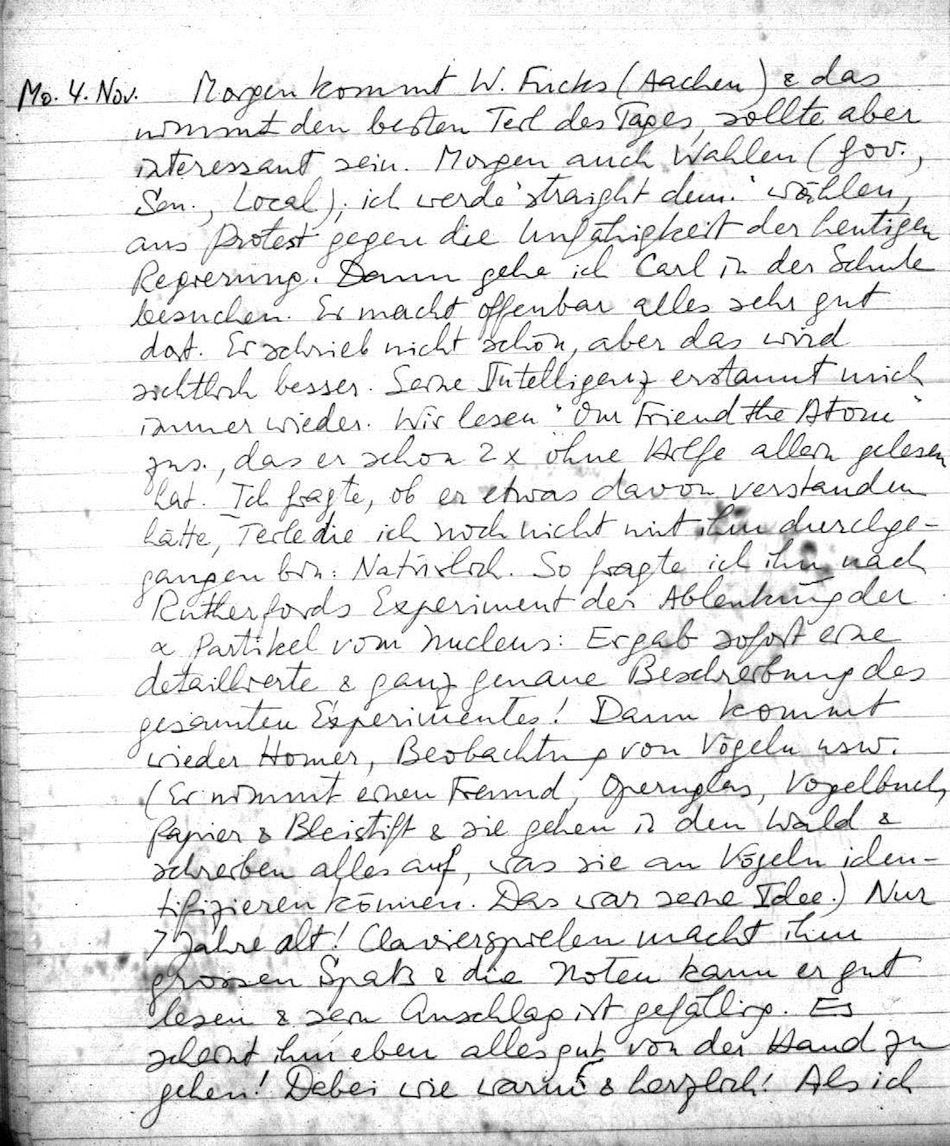 Mo. 4. Nov. Morgen kommt W. Fucks (Aachen) & das
nimmt den besten Teil des Tages, sollte aber
interessant sein. Morgen auch Wahlen (Gov.,
Sen., Local); ich werde 'straight dem.' wählen,
aus Protest gegen die Unfähigkeit der heutigen
Regierung. Dann gehe ich Carl in der Schule
besuchen. Er macht offenbar alles sehr gut
dort. Er schrieb nicht schön, aber das wird
sichtlich besser. Seine Intelligenz erstaunt mich
immer wieder. Wir lesen "Our Friend the Atom"
zus., das er schon 2x ohne Hilfe allein gelesen
hat. Ich fragte, ob er etwas davon verstanden
hätte, Teile die ich noch nicht mit ihm durchge-
gangen bin: Natürlich. So fragte ich ihn nach
Rutherfords Experiment der Ablenkung der
α Partikel vom Nucleus: Er gab sofort eine
detaillierte & ganz genaue Beschreibung des
gesamten Experimentes! Dann kommt
wieder Homer, Beobachtung von Vögeln usw.
(Er nimmt einen Freund, Opernglas, Vogelbuch,
Papier & Bleistift & sie gehen in den Wald &
schreiben alles auf, was sie an Vögeln iden-
tifizieren können. Das war seine Idee.) Nur
7 Jahre alt! Clavierspielen macht ihm
grossen Spaß & die Noten kann er gut
lesen & sein Anschlag ist gefällig. Es
scheint ihm eben alles gut von der Hand zu
gehen! Dabei wie warm & herzlich! Als ich